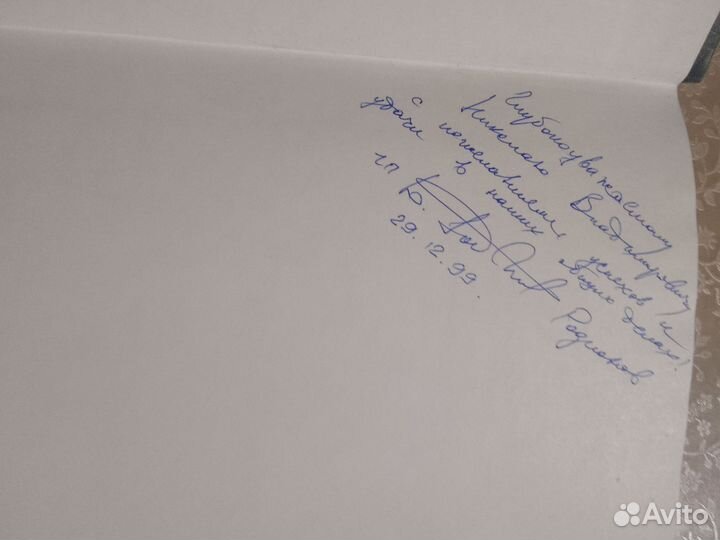 Глубокоуважаемому
Николаю Владимировичу
с пожеланиями успехов и
удачи в наших общих делах!
Родионов
29.12.99.
Avito